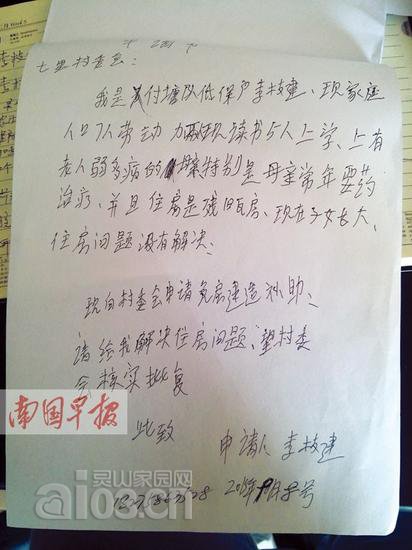 申请书
七里村委会：
我是付塘队低保户李枝建、现家庭
人口7人劳动力 现读书5人上学、上有
老人弱多病的 特别是母亲常年要药
治疗、并且住房是残瓦房、现在子女长大、
住房问题没有解决、
现向村委会申请危房建造补助、
请给我解决住房问题、望村委
会核实批复
此致
申请人 李枝建
南国早报
灵山家园网
aios.cn